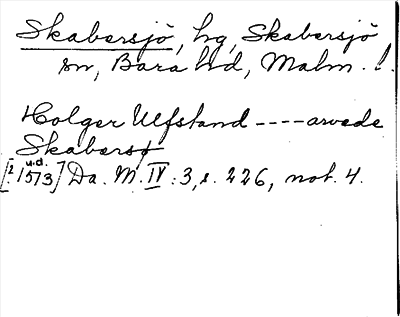 Skabersjö, hg, Skabersjö
sn, Bara hd, Malm. l.
Holger Ulfstand ---- arvede
Skabersø
[? u.d. 1573] Da. M. IV: 3, s. 226, not. 4.